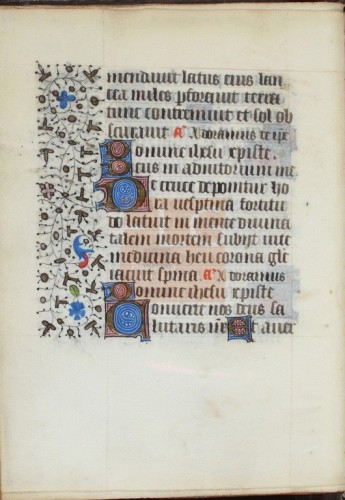 mendavit latus eius lan
cea miles pforavit terra
tunc contremuit et sol ob
scuravit A Adoramus te xpe
Domine ihesu xpiste.
Deus in adiutorium me
De cruce deponitur ho
ra vesptina fortitu
do latuit in mente divina
talem mortem subijt vite
medicina heu corona glie
iacuit spina A Adoramus
Domine ihesu xpiste
Converte nos deus sa
lutaris nr Et aver